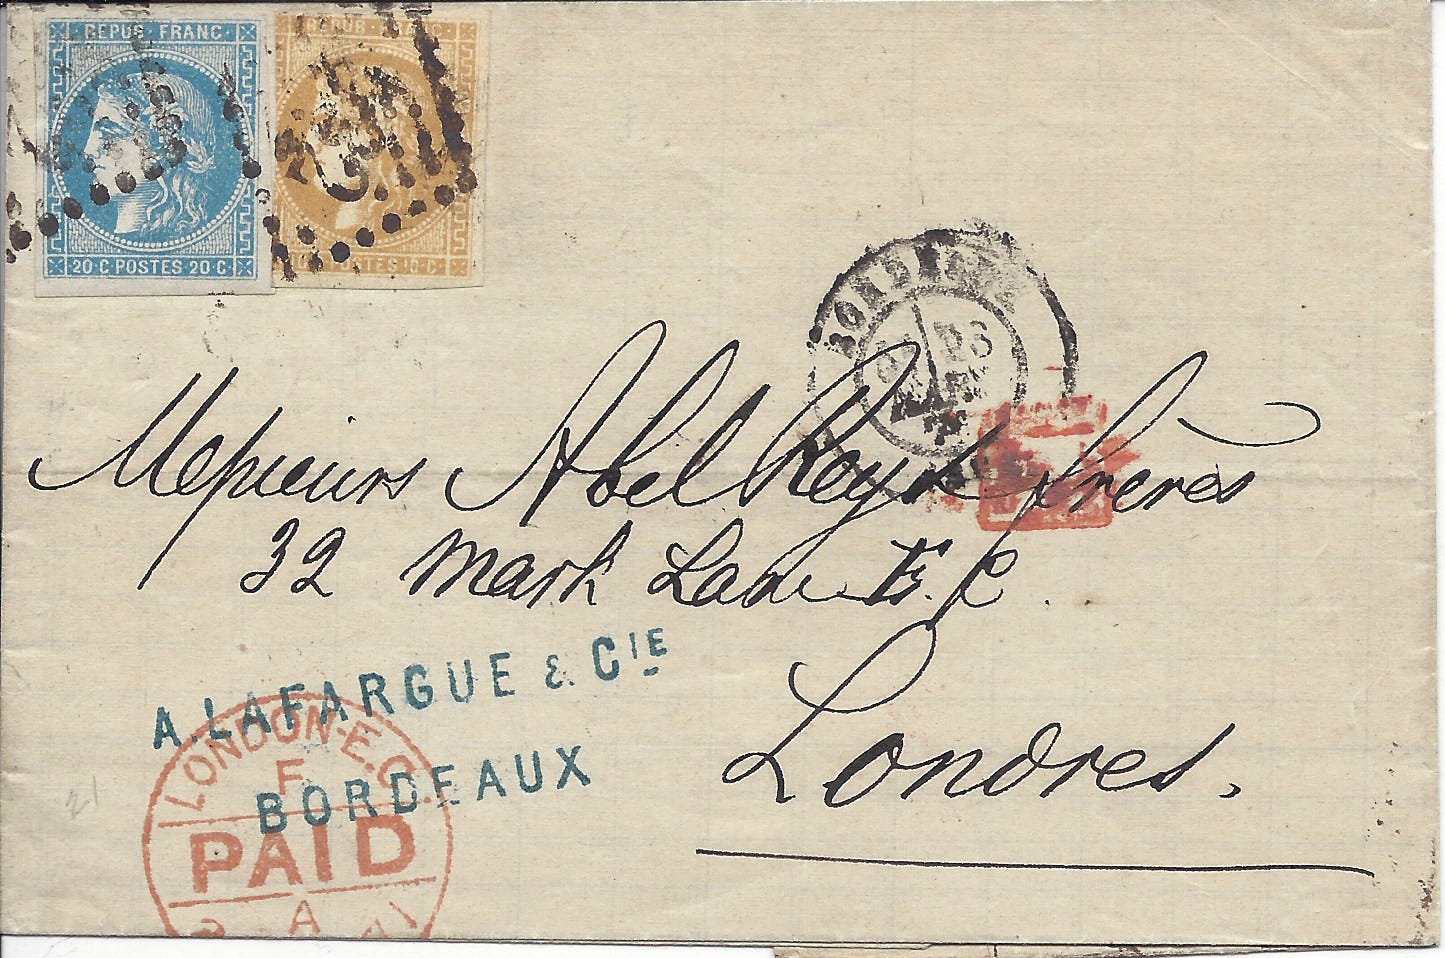 REPUB · FRANC ·
20 · C POSTES 20 · C
POSTES 10 · C
BORDEAUX
Messieurs Abel Rey & Frères
32 Mark Lane E.C.
Londres.
A. LAFARGUE & CIE
BORDEAUX
LONDON-E.C.
F.
PAID
A
21